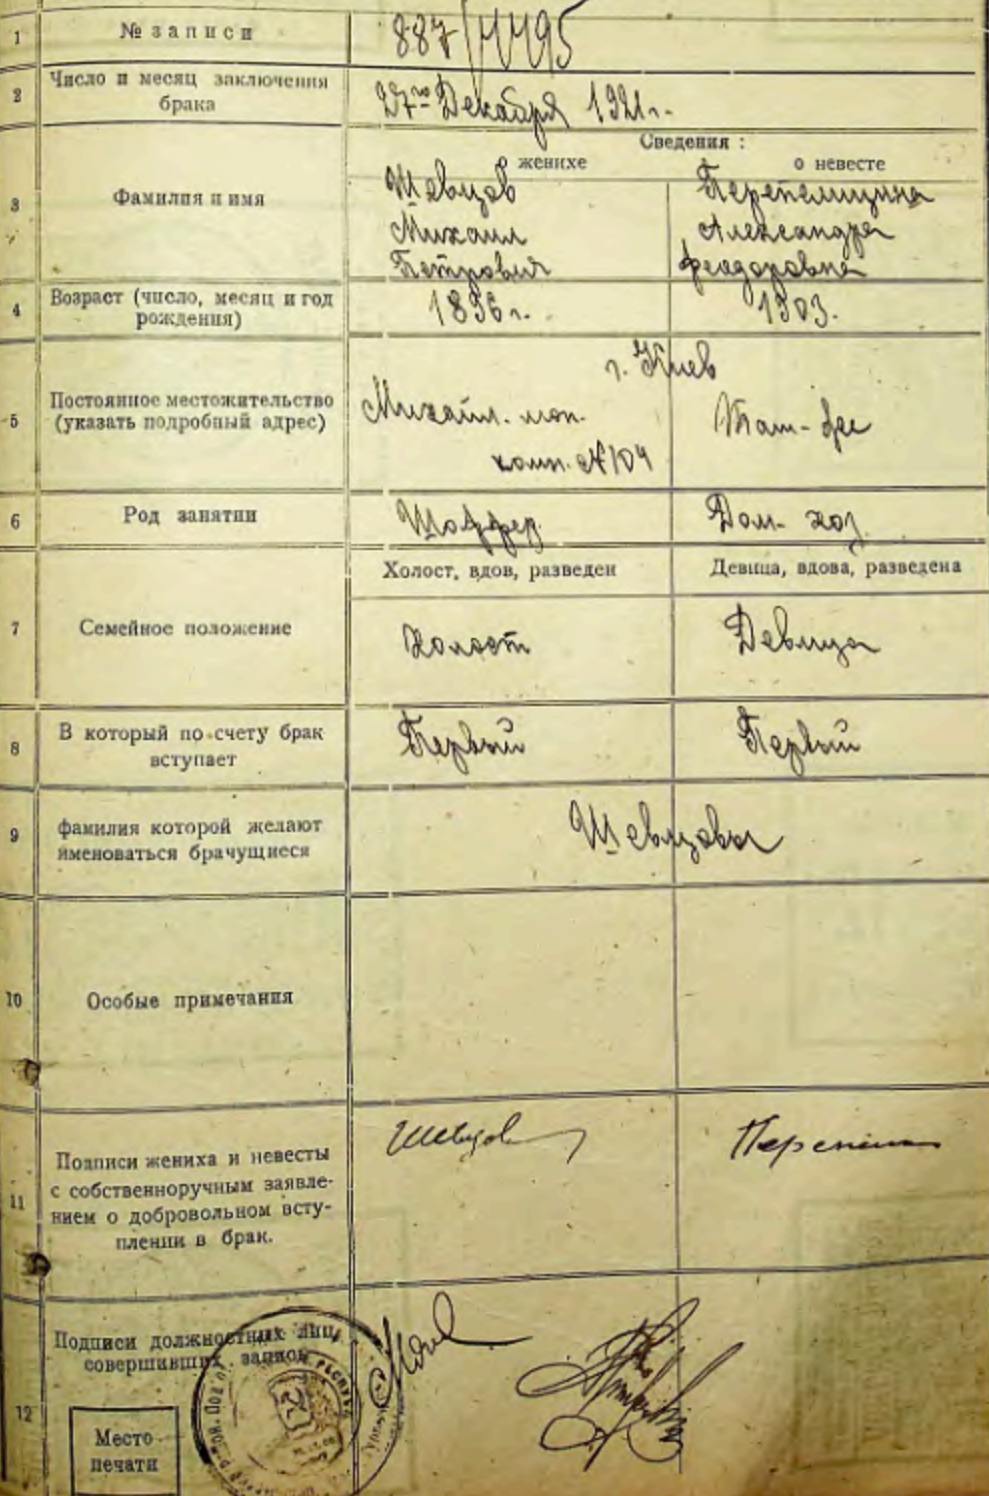 1 № записи 887/4495
2 Число и месяц заключения
брака
27го Декабря 1921 г.
Сведения :
о женихе о невесте
3 Фамилия и имя
Шевцов Перепелицина
Михаил Александра
Петрович Феодоровна
4 Возраст (число, месяц и год
рождения)
1896 г. 1903.
г. Киев
5 Постоянное местожительство
(указать подробный адрес)
Михайл. мон. Там-же
комн. №104
6 Род занятии Шоффер Дом- хоз
Холост, вдов, разведен Девица, вдова, разведена
7 Семейное положение Холост Девица
8 В который по счету брак
вступает
Первый Первый
9 фамилия которой желают
именоваться брачущиеся
Шевцовы
10 Особые примечания
Шевцов
11 Подписи жениха и невесты
с собственноручным заявле-
нием о добровольном всту-
плении в брак.
12 Подписи должностных лиц,
совершивших запись
Место
печати